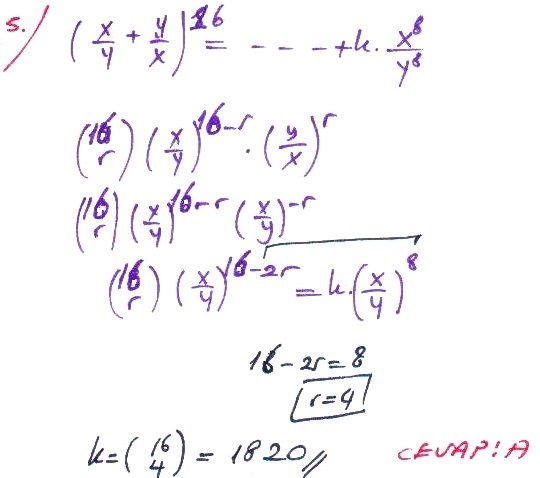 5.) (x/y + y/x)^16 = - - - - + k · x^8/y^8
(16 r) (x/y)^16-r · (y/x)^r
(16 r) (x/y)^16-r (x/y)^-r
(16 r) (x/y)^16-2r = k·(x/y)^8
16 - 2r = 8
r = 4
k = (16 4) = 1820 //
CEVAP: A